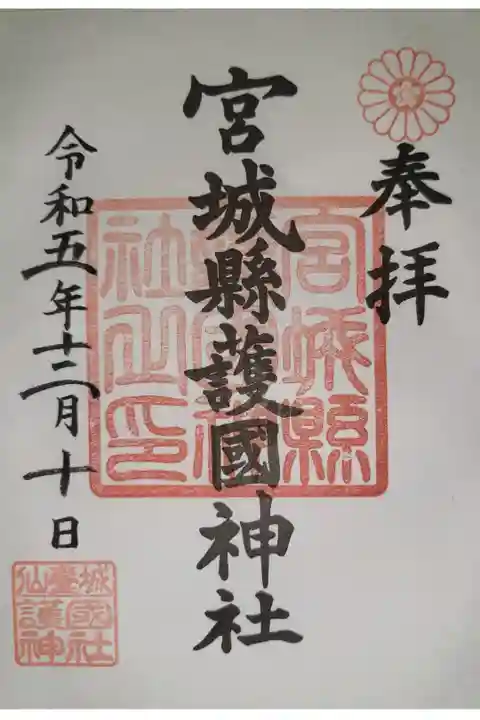 奉拝
宮城縣護國神社
宮城縣護國神社之印
令和五年十二月十日
仙臺城
護國神社